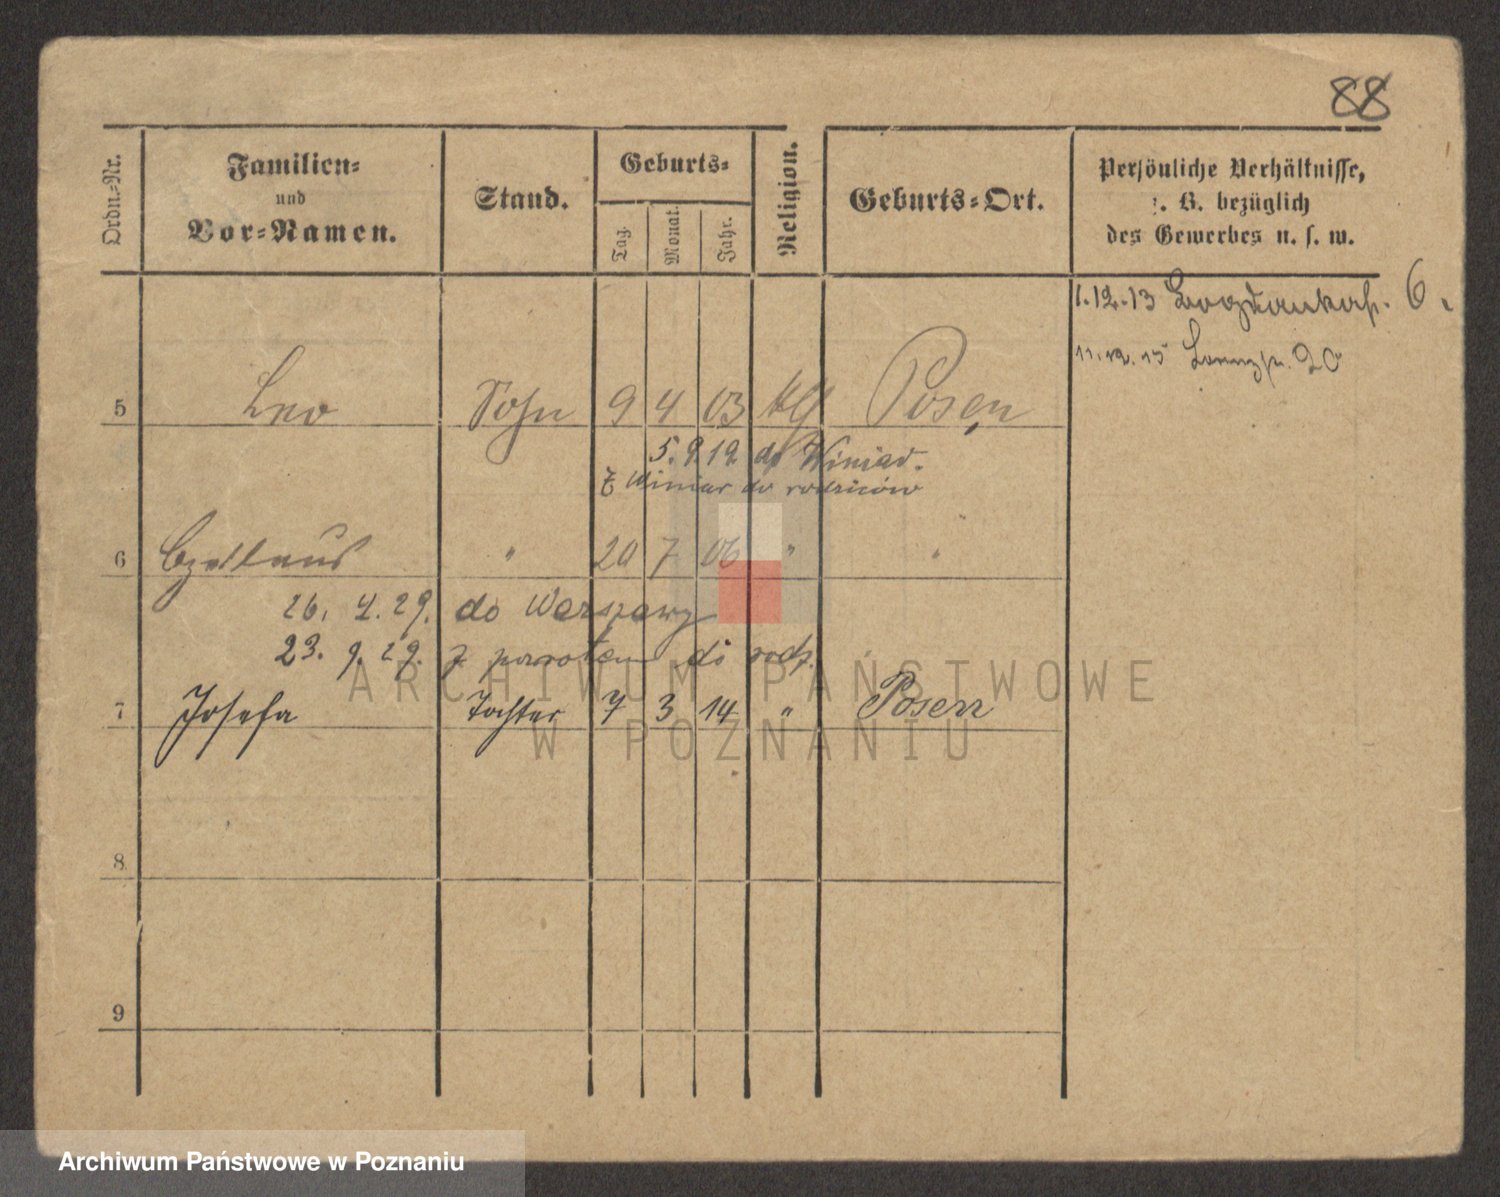 88
Ordn.-Nr.
Familien-
und
Vor-Namen.
Stand.
Geburts-
Tag.
Monat.
Jahr.
Religion.
Geburts-Ort.
Persönliche Verhältnisse,
z. B. bezüglich
des Gewerbes u. s. w.
1.12.13 Bogdankastr. 6.
11.12.15 20
5 Leo Sohn 9 4 03 Posen
5.9.12 do Winiar.
Z Winiar do rodziców
6 Czeslaus " 20 7 06 " "
26. 4. 29. do Warszawy
23. 9. 29. z powrotem do rodz.
7 Josefa Tochter 7 3 14 " Posen
8
9
ARCHIWUM PAŃSTWOWE
W POZNANIU
Archiwum Państwowe w Poznaniu